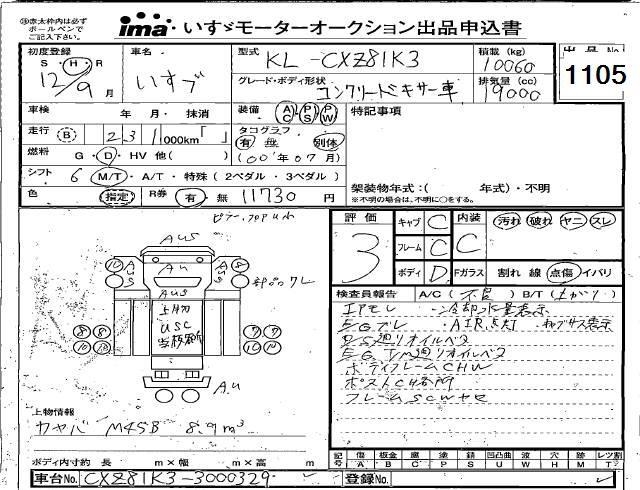 ※赤太枠内は必ず
ボールペンで
ご記入下さい。
ima いすゞモーターオークション出品申込書
初度登録 車名 型式 KL-CXZ81K3 積載 (kg) 出品No
S・H・R いすゞ 10060 1105
12/9月 グレード・ボディ形状 コンクリートミキサー車 排気量(cc) 19000
車検 年 月・抹消 装備 AC・PS・PW 特記事項
走行 B 231 000km「 」 タコグラフ 有 無 別体
燃料 G・D・HV 他( ) (00'年07月)
シフト 6 M/T・A/T・特殊(2ペダル・3ペダル) 架装物年式:( 年式)・不明
色 指定 R券 有・無 11730円 ※不明の場合は、不明に○をする。
評価 3 キャブ C 内装 C 汚れ 破れ ヤニ スレ
フレーム C
ボディ D Fガラス 割れ 線 点傷 イバリ
検査員報告 A/C(不良) B/T(上がり)
エアモレ ・冷却水量表示
E/Gブレ ・AIR点灯
P/S廻りオイルベタ
E/G T/M廻りオイルベタ
ボディフレームCHW
フレームSCWサビ
AUS
AU
AUS
上物
USC
AU
上物情報
カヤバ M45B 8.9m³
ボディ内寸約 長 m×幅 m×高 m
記号 傷 板金 腐 塗 錆 凹凸曲 波 穴 跡 レツ割
A B C P S U W H M T
車台No. CXZ81K3-3000329 登録No.